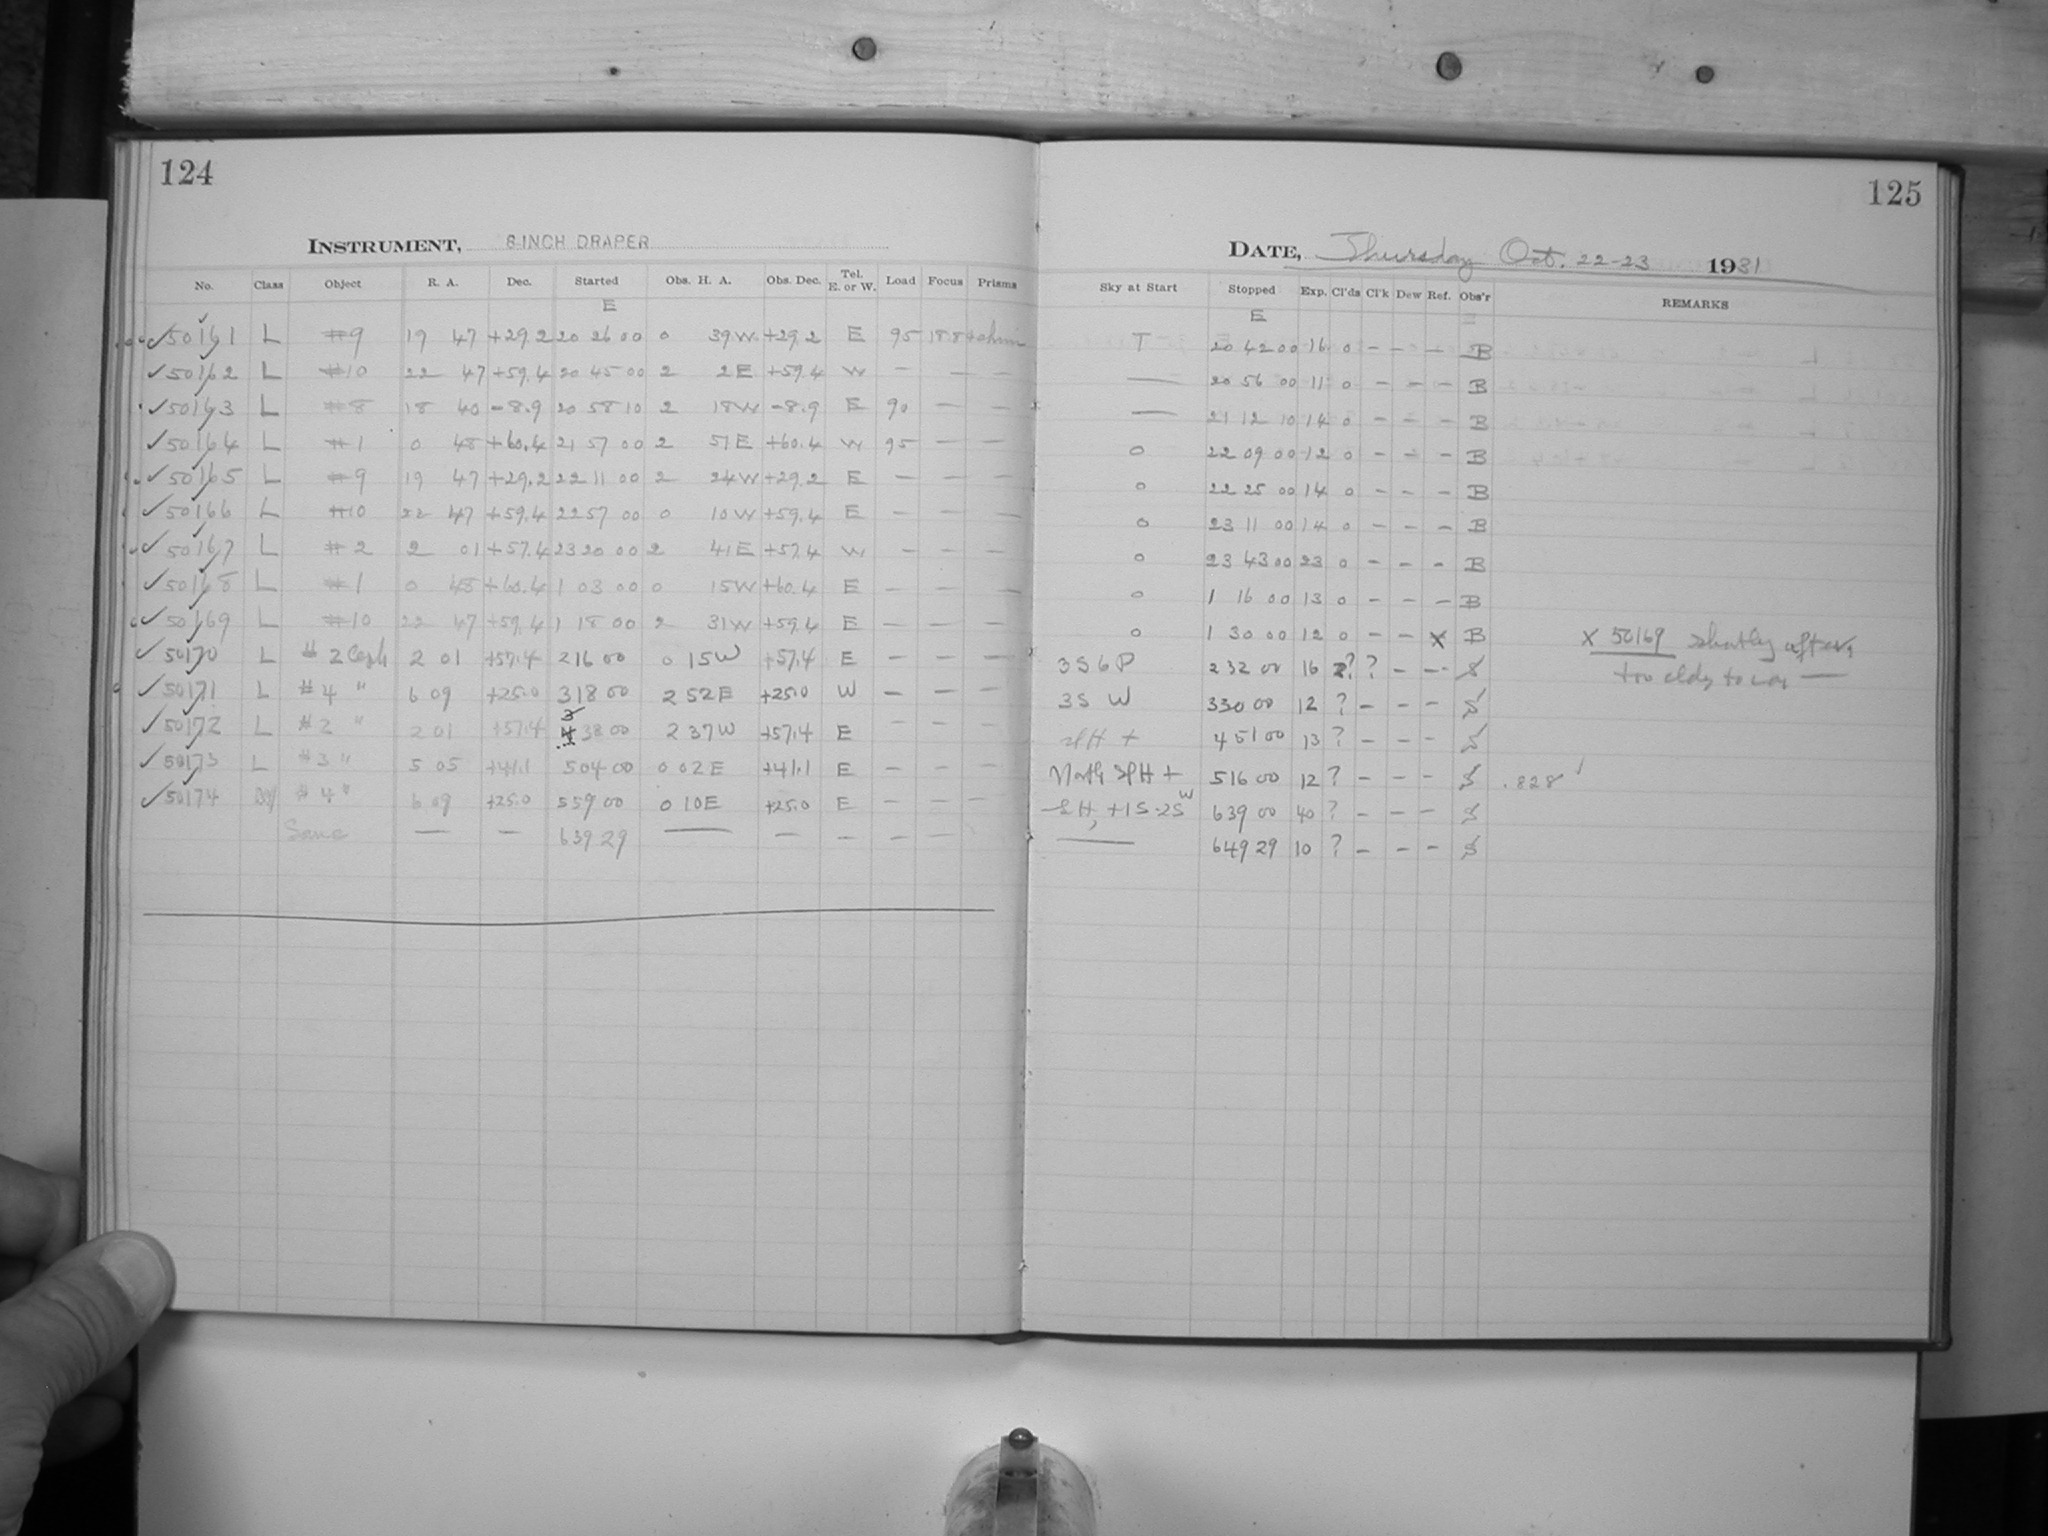 124
INSTRUMENT, 8-INCH DRAPER
No. Class Object R. A. Dec. Started Obs. H. A. Obs. Dec. Tel. E. or W. Load Focus Prisms
E
50161 L #9 19 47 +29.2 20 26 00 0 39W +29.2 E 95
50162 L #10 22 47 +59.4 20 45 00 2 2E +59.4 W - - -
50163 L #8 18 40 -8.9 20 58 10 2 18W -8.9 E 90 - -
50164 L #1 0 48 +60.4 21 57 00 2 51E +60.4 W 95 - -
50165 L #9 19 47 +29.2 22 11 00 2 24W +29.2 E - - -
50166 L #10 22 47 +59.4 22 57 00 0 10W +59.4 E - - -
50167 L #2 2 01 +57.4 23 20 00 2 41E +57.4 W - - -
50168 L #1 0 48 +60.4 1 03 00 0 15W +60.4 E - - -
50169 L #10 22 47 +59.4 1 18 00 2 31W +59.4 E - - -
50170 L #2 Ceph 2 01 +57.4 2 16 00 0 15W +57.4 E - - -
50171 L #4 " 6 09 +25.0 3 18 00 2 52E +25.0 W - - -
50172 L #2 " 2 01 +57.4 38 00 2 37W +57.4 E - - -
50173 L #3 " 5 05 +41.1 5 04 00 0 02E +41.1 E - - -
50174 #4 " 6 09 +25.0 5 59 00 0 10E +25.0 E - - -
Same — — 6 39 29 — - - - -
125
DATE, Thursday Oct. 22-23 1931
Sky at Start Stopped Exp. Cl'ds Cl'k Dew Ref. Obs'r REMARKS
E
T 20 42 00 16 0 - - - B
— 20 56 00 11 0 - - - B
— 21 12 10 14 0 - - - B
0 22 09 00 12 0 - - - B
0 22 25 00 14 0 - - - B
0 23 11 00 14 0 - - - B
0 23 43 00 23 0 - - - B
0 1 16 00 13 0 - - - B
0 1 30 00 12 0 - - X B X 50169 shortly after
3S6P 2 32 00 16 ? ? - - S too cldy to
3S W 3 30 00 12 ? - - - S
4 51 00 13 ? - - - S
North SPH + 5 16 00 12 ? - - - S .828
+1S-2S W 6 39 00 40 ? - - - S
— 6 49 29 10 ? - - - S